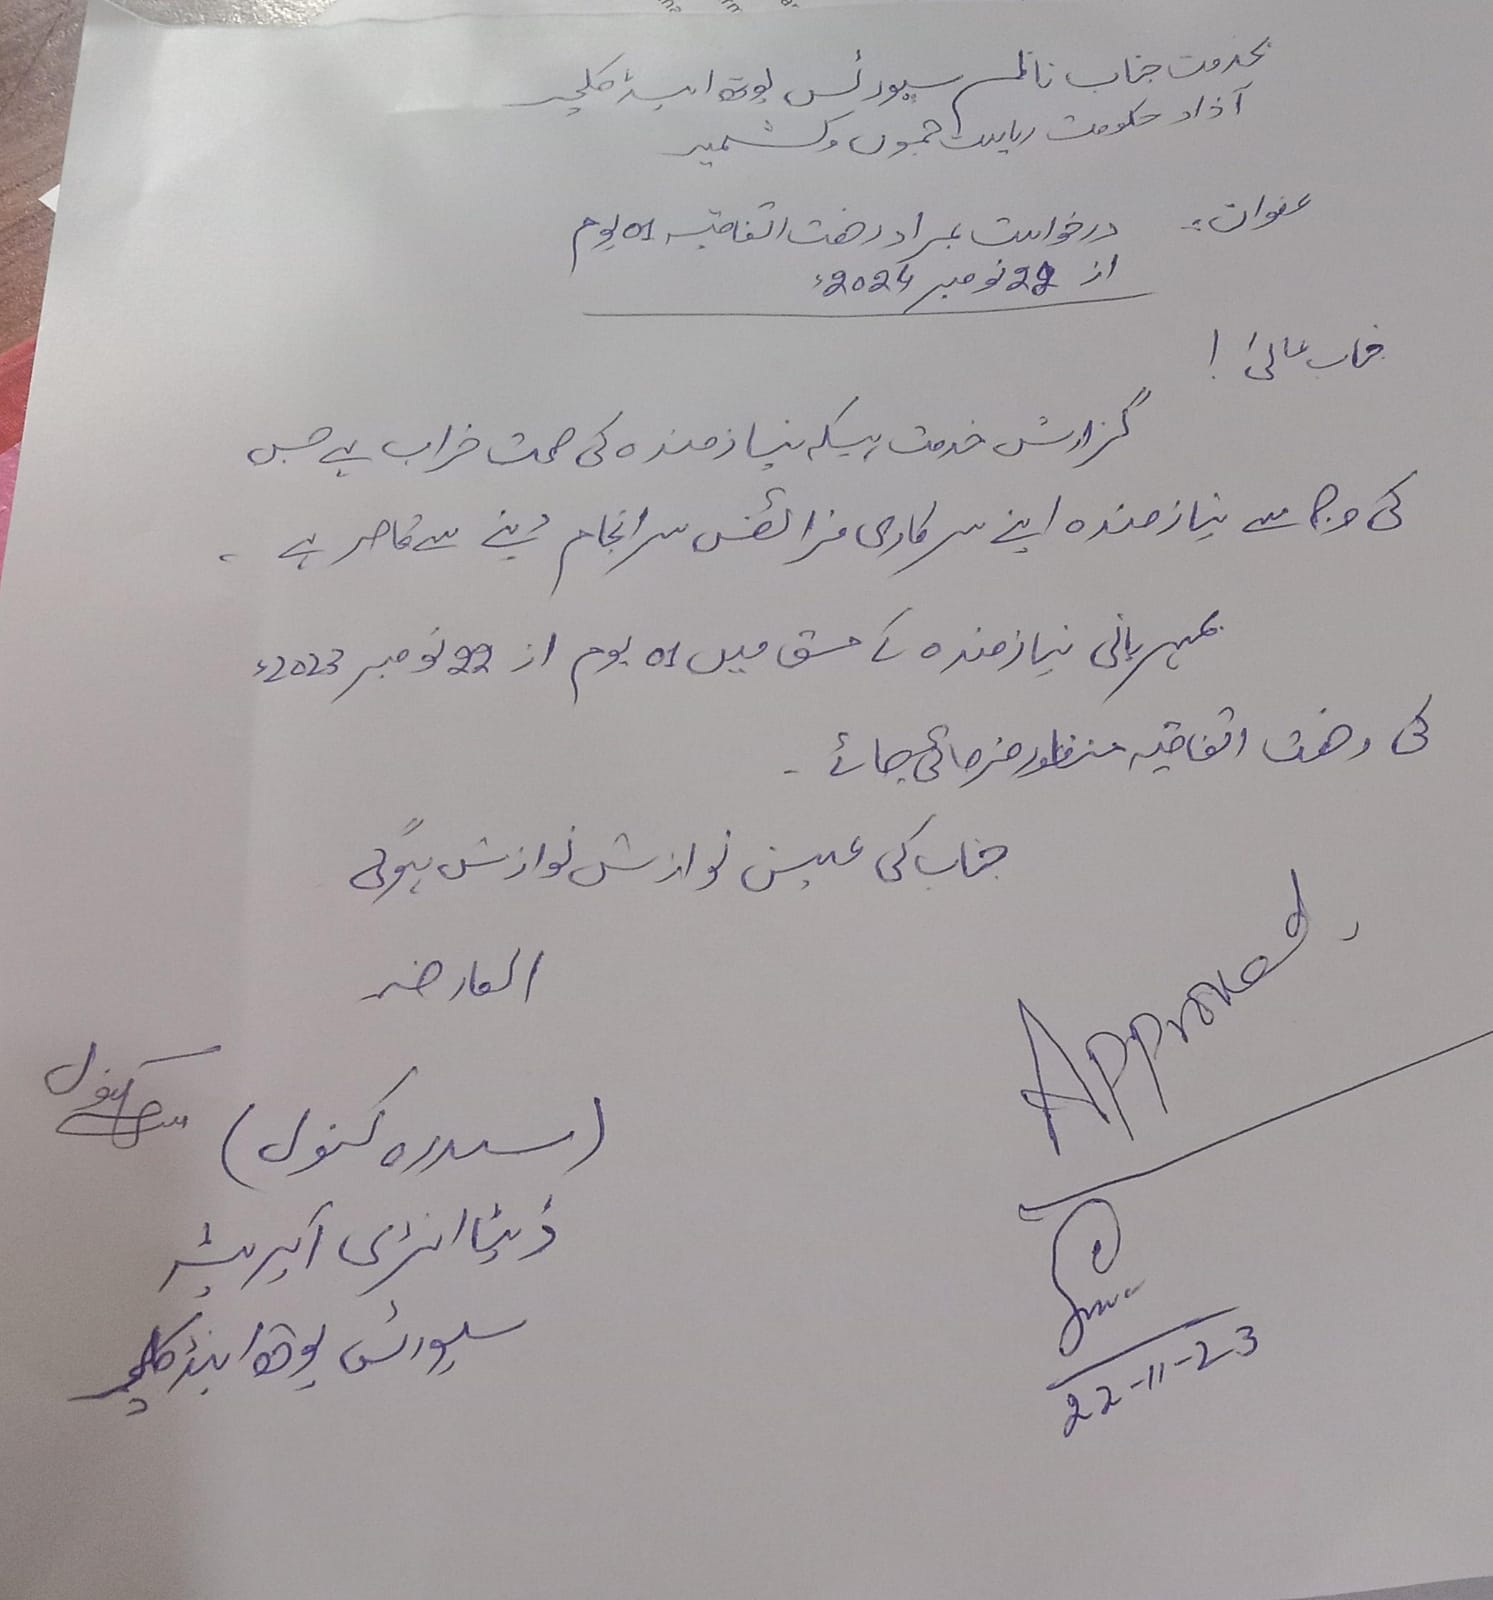 بخدمت جناب ناظم سپورٹس یوتھ اینڈ کلچر
آزاد حکومت ریاست جموں و کشمیر
عنوان:۔ درخواست بمراد رخصت اتفاقیہ 01 یوم
از 22 نومبر 2024ء
جناب عالی!
گزارش خدمت ہیکہ نیازمندہ کی صحت خراب ہے جس
کی وجہ سے نیازمندہ اپنے سرکاری فرائض سرانجام دینے سے قاصر ہے ۔
بمہربانی نیازمندہ کے حق میں 01 یوم از 22 نومبر 2023ء
کی رخصت اتفاقیہ منظور فرمائی جائے ۔
جناب کی عین نوازش نوازش ہوگی
العارضہ
(سدرہ کنول)
ڈیٹا انٹری آپریٹر
سپورٹس یوتھ اینڈ کلچر
Approved
22-11-23